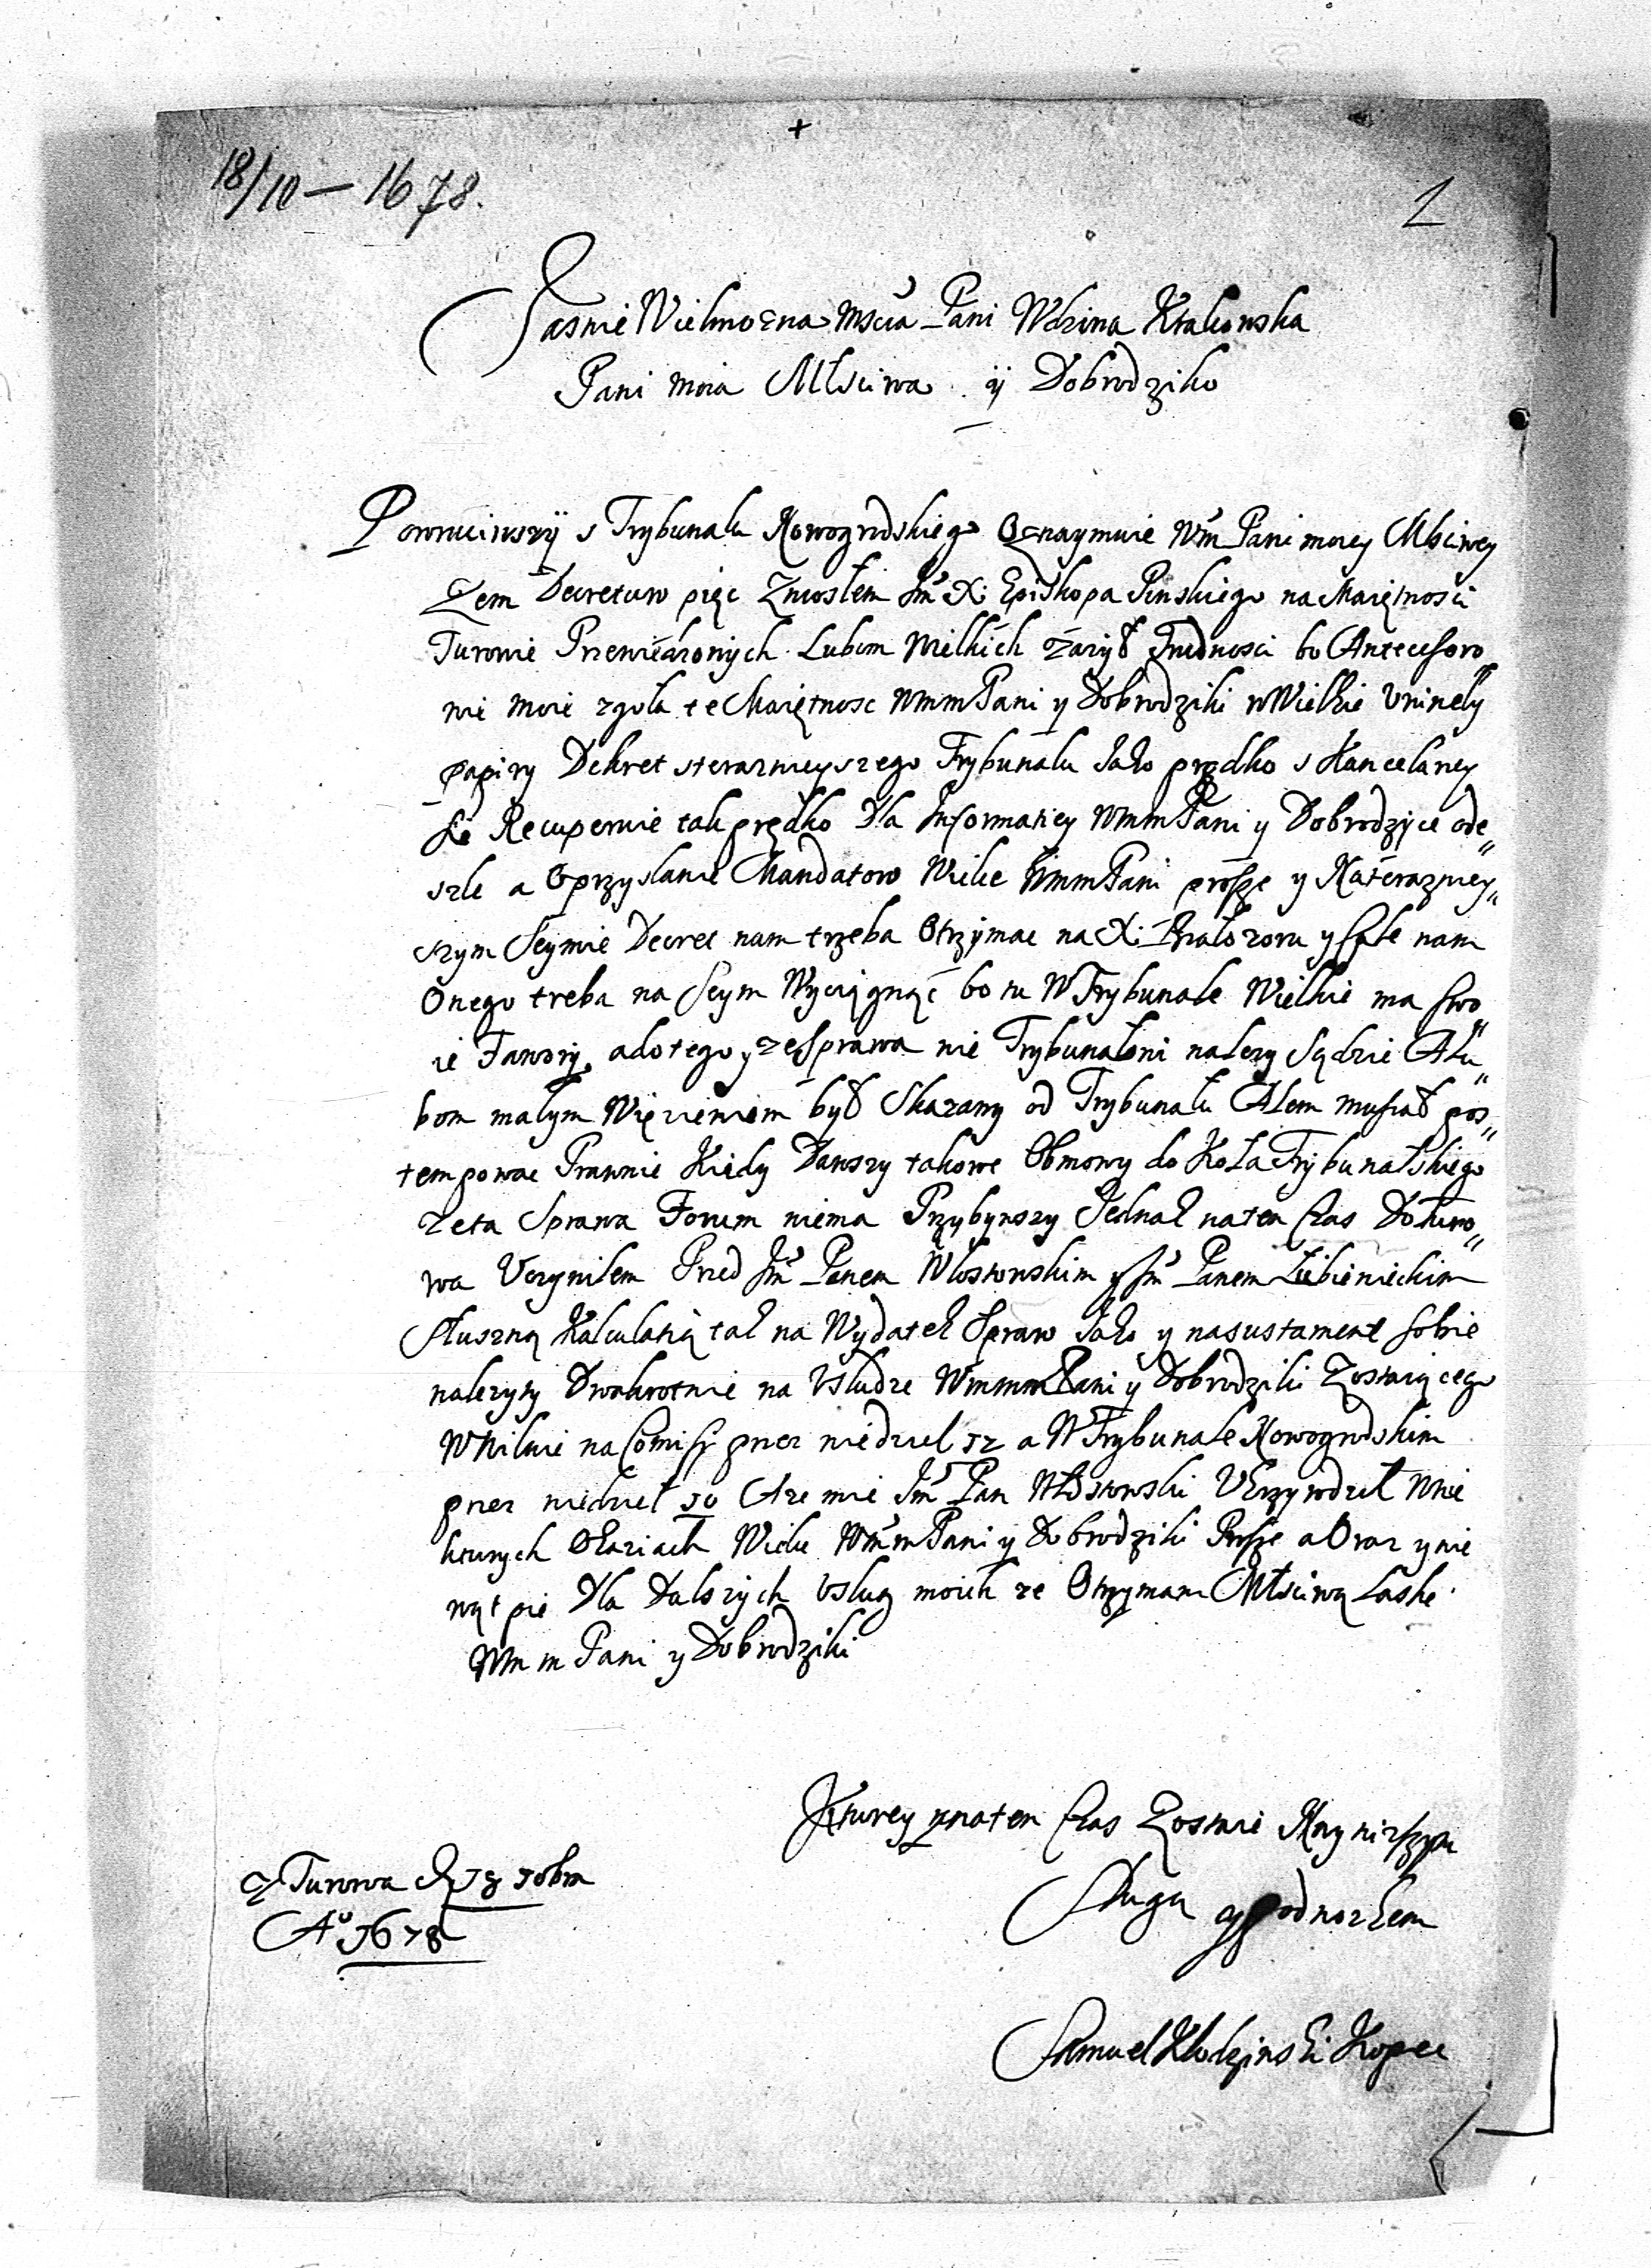 +
18/10 – 1678.
1
Jasnie Wielmozna Mscia Pani Wdzina Krakowska
Pani moia Młsciwa ÿ Dobrodziko
Powruciwszÿ s Trybunału Nowogrodskiego Oznaymuie Wm Pani moiey Msciwey
Zem Decretuw pięc Zniosłem Jm X: Episkopa Pinskiego na Maiętnosci
Turowie Przewiedzonÿch. Lubom Wielkich zazÿł Trudnosci bo Antecessoro
wie moie zgoła te Maiętnosc WmmPani y Dobrodziki w Wielkie Uwinely
papiry Dekret sterazneyszego Trybunału Jako prędko s Kancelarey
sie Recuperuie tak prędko Dla Informatiey WmmPani y Dobrodzyce ode„
szle a Oprzyslanie Mandatow Wielce WmmPani proszę y Naterazniey„
szym Seymie Decret nam trzeba Otrzymac na X: Białozora y scze nam
Onego treba na Seym Wyciągnąć bo tu W Trybunale Wielkie ma swo„
ie Fawory, adotego y zesprawa nie Trybunałowi nalezy Sądzic A Lu„
bom małym Więzieniem był Skazany od Trybunału Alem musiał pos„
tempowac Prawnie Kiedy Dawszy takowe Obmowy do Koła Trybunałskiego
Zeta Sprawa Forum niema Przybywszy Jednak naten Czas Doturo„
wa Uczynilem Przed Jm Panem Włostowskim y Jm Panem Lubienieckim
Słuszną Kalculatią tak na Wydatek Spraw Jako y nasustament sobie
nalezyty Dwakrotnie na Usludze WmmmPani y Dobrodziki Zostaiącego
W Wilnie na Comisÿ przez niedziel 12 a W Trybunale Nowogrodskim
przez niedziel 10 A ze mie Jm Pan Włostowski Ukrzywdził Wnie
kturych Okaziach Wielce WmmPani y Dobrodziki Proszę a Oraz y nie
wątpie Dla Dalszych Uslug moich ze Otrzymam Młsciwą Laske
Wm m Pani y Dobrodziki
Kturey ynaten Czas Zostaie Naynizszym
Slugą y Podnozkem
Z Turowa D 18 10bra
A° 1678
Samuel Kłodzinski Kopec